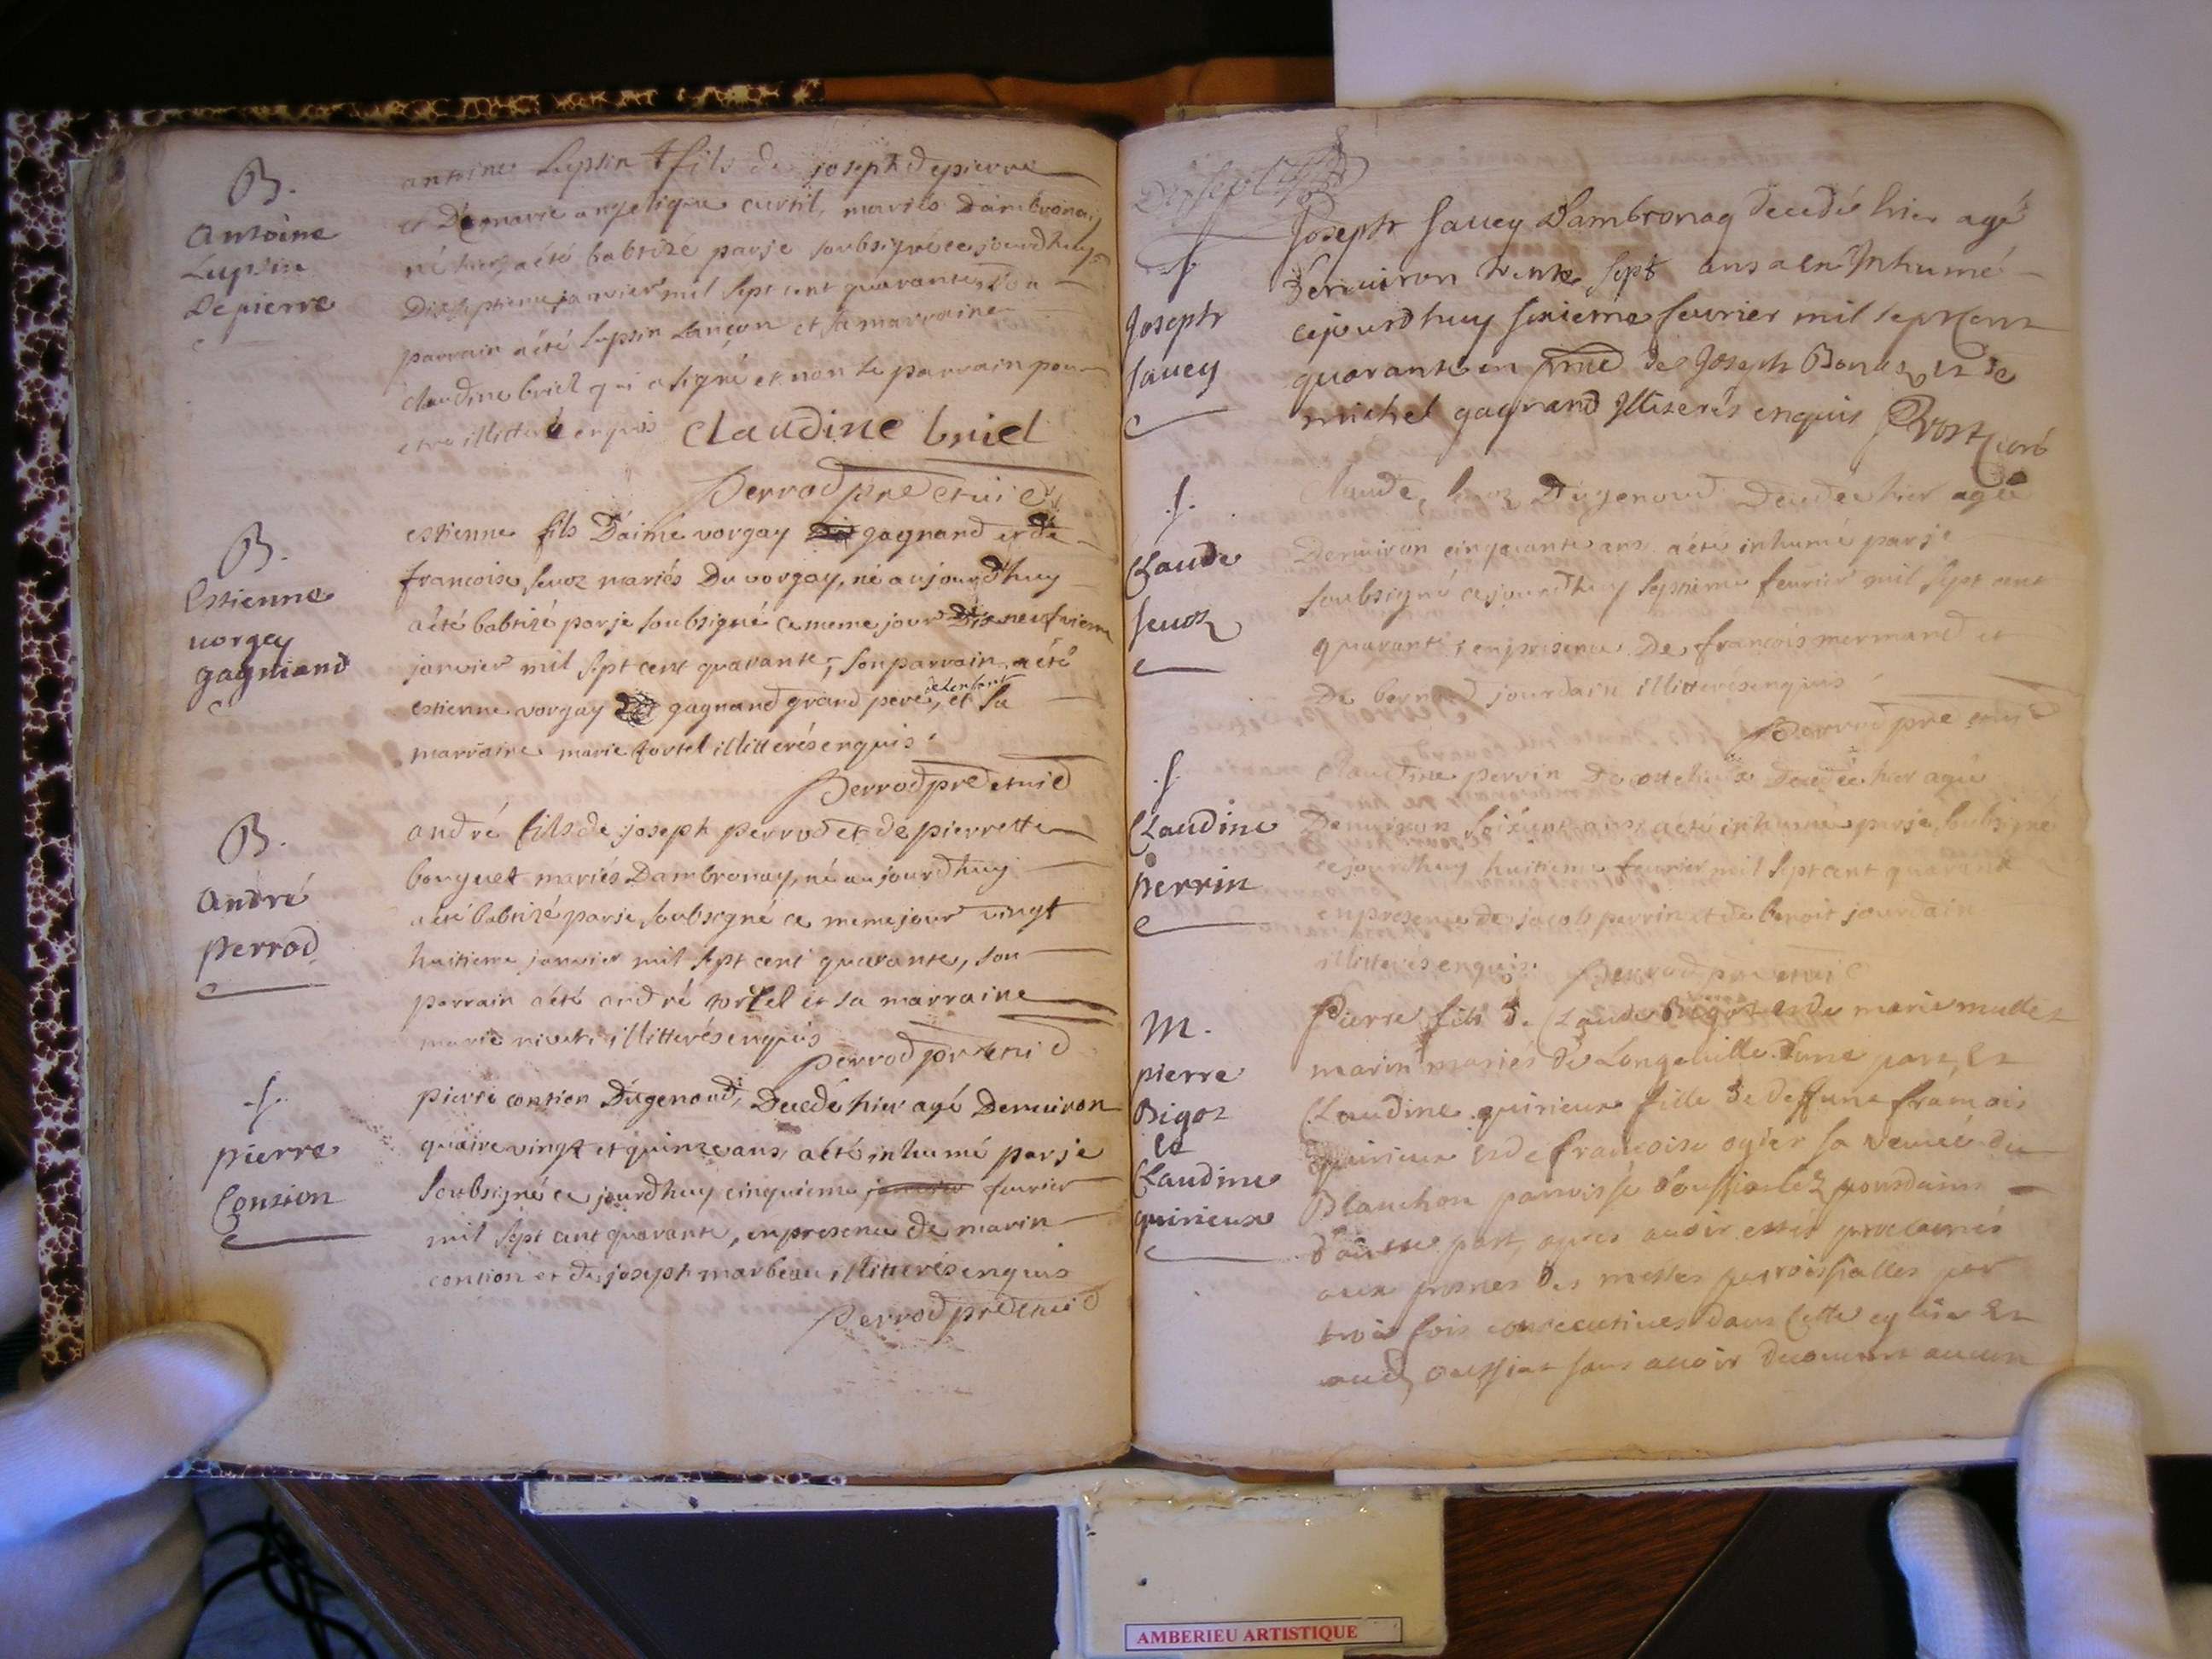 B.
Antoine
Lupsin
Depierre
antoine Lupsin fils de joseph depierre
et De marie angelique curtil, mariés Dambronay
né hier, a été babtizé par je soubsigné ce jourdhuy
Dixseptieme janvier mil sept cent quarante, son
parrain a été Lupsin Lançon et sa marraine
claudine briel qui a signé et non le parrain pour
etre illitteré enquis Claudine briel
Perrod pre et vic
B.
Estienne
vorgey
gagniand
estienne fils D'aimé vorgay gagnand et de
francoise seuoz mariés Du vorgay, né aujourd'huy
a été babtizé par je soubsigné ce meme jour Dix neufvieme
janvier mil sept cent quarante, son parrain a été
estienne vorgay gagnand grand pere de lenfant, et sa
marraine marie tortel illitterés enquis
Perrod pre et vic
B.
André
perrod
andré fils de joseph perrod et de pierrette
bouguet mariés Dambronay, né aujourdhuy
a été babtizé par je soubsigné ce meme jour vingt
huitieme janvier mil sept cent quarante, son
parrain a été andré tortel et sa marraine
marie illitterés enquis
perrod pre et vic
f.
pierre
Contion
pierre contion Dugenoud, Decedé hier agé Denuiron
quatre vingt et quinze ans, a été inhumé par je
soubsigné ce jourdhuy cinquieme janvier feurier
mil sept cent quarante, en presence de marin
contion et de joseph marbeau illitterés enquis
Perrod pre et vic
Dixsept
f
Joseph
sauey
Joseph sauey Dambronay decedé hier agé
denuiron trente sept ans a ete Inhumé
cejourdhuy sixieme feurier mil sept cent
quarante en pnce de Joseph Bonaz et de
michel gagnand Illiterés enquis curé
f.
Claude
seuoz
Claude seuoz Dugenoud Decedée hier agée
Denuiron cinquante ans a été inhumé par je
soubsigné cejourdhuy septieme feurier mil sept cent
quarante, en presence De francois mermand et
De bernard jourdain illitterés enquis
Perrod pre et vic
f
Claudine
perrin
Claudine perrin Decedée hier agée
Denuiron soixante ans a été inhumé par je soubsigné
ce jourdhuy huitieme feurier mil sept cent quarante
en presence de jacob perrin et de benoit jourdain
illitterés enquis. Perrod pre et vic
M.
pierre
Bigot
et
Claudine
quirieux
Pierre fils de Claude Bigot et de marie mullet
marin mariés de Longeuille d'une part, et
Claudine quirieux fille de deffunt francois
quirieux et de francoise ogier sa veuue du
Blanchon parroisse d'oussiat
d'autre part, apres auoir estés proclamés
aux prones des messes parroissialles par
trois fois consecutiues dans cette eglise et
aud oussiat sans auoir decouuert aucun
AMBERIEU ARTISTIQUE